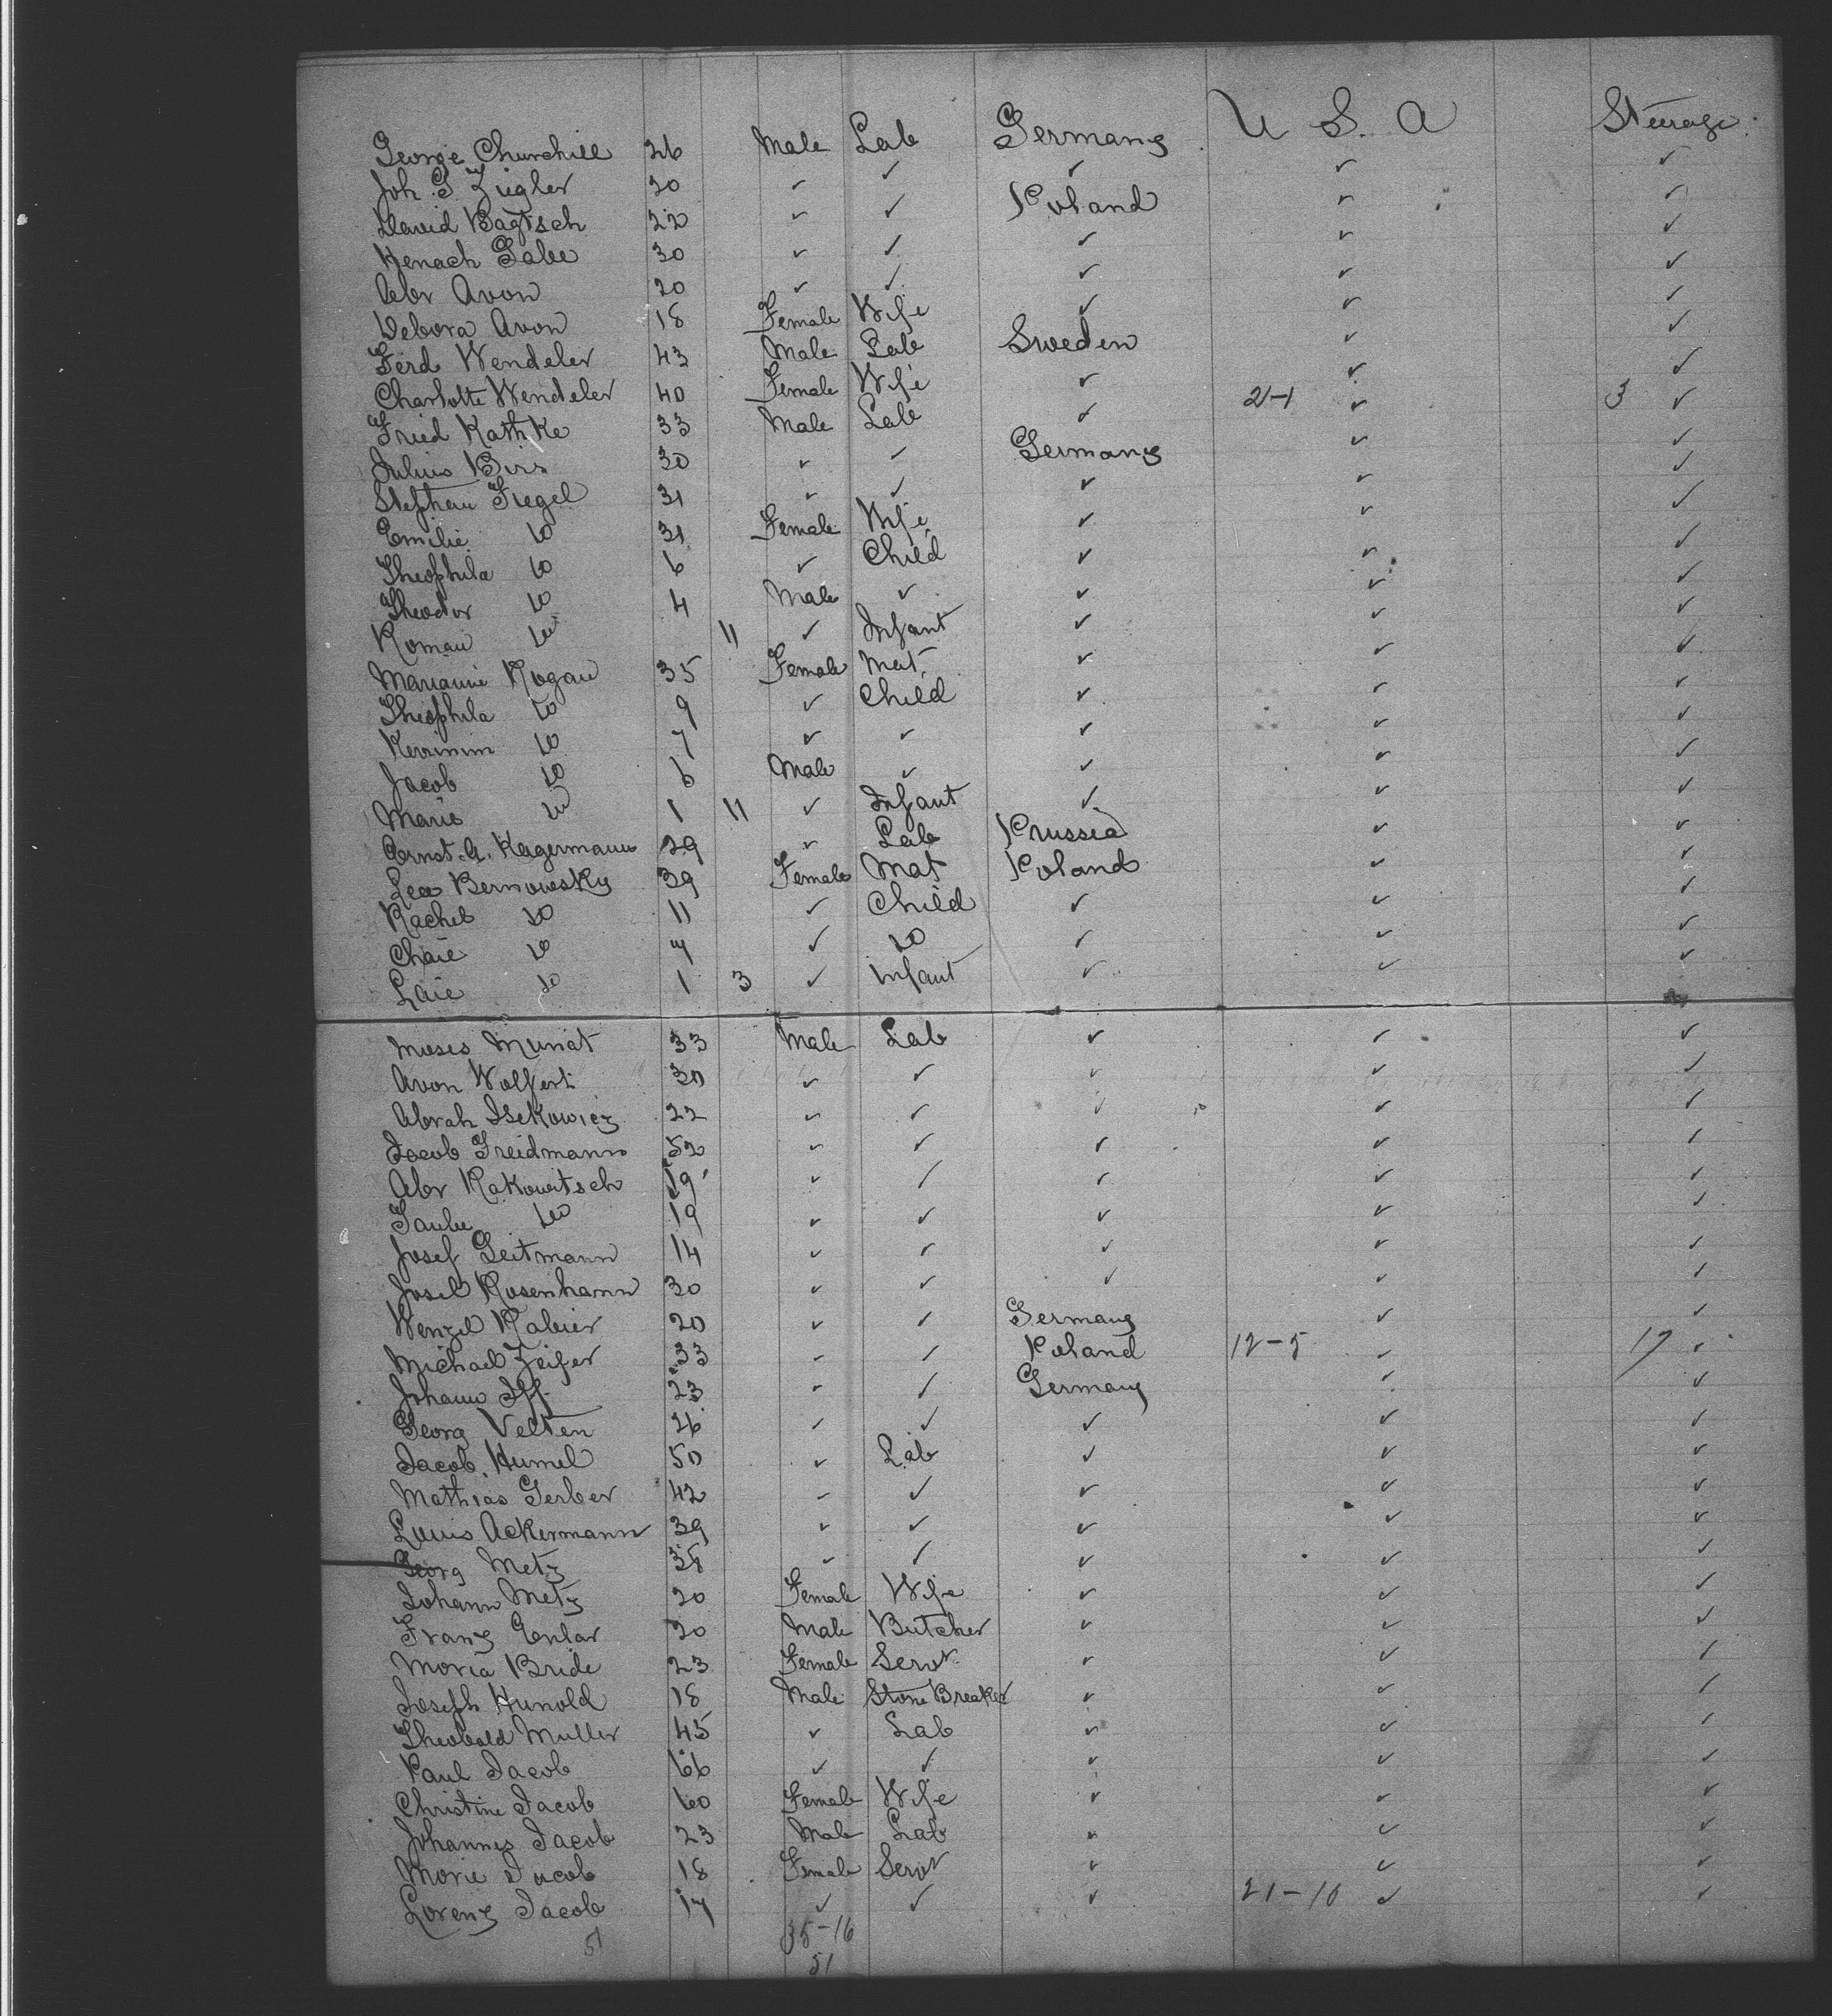 George Churchill 26 Male Lab Germany U S. A Steerage
Joh. G Ziegler 20 ✓ ✓ ✓ ✓ ✓
David Bagtsch 22 ✓ ✓ Poland ✓ ✓
Henach Gabe 30 ✓ ✓ ✓ ✓ ✓
Abr Avon 20 ✓ ✓ ✓ ✓ ✓
Debora Avon 18 Female Wife ✓ ✓ ✓
Ferd Wendeler 43 Male Lab Sweden ✓ ✓
Charlotte Wendeler 40 Female Wife ✓ ✓ ✓
Fried Kathke 33 Male Lab ✓ 2-1 ✓ 3 ✓
Julius Birs 30 ✓ ✓ Germany ✓ ✓
Stephan Fiegel 31 ✓ ✓ ✓ ✓ ✓
Emilie Do 31 Female Wife ✓ ✓ ✓
Theophila Do 6 ✓ Child ✓ ✓ ✓
Theodor Do 4 Male ✓ ✓ ✓ ✓
Roman Do 11 ✓ Infant ✓ ✓ ✓
Marianne Rogau 35 Female Mat ✓ ✓ ✓
Theophila Do 9 ✓ Child ✓ ✓ ✓
Do 7 ✓ ✓ ✓ ✓ ✓
Jacob Do 6 Male ✓ ✓ ✓ ✓
Marie Do 1 11 ✓ Infant ✓ ✓ ✓
Ernst A. Kagermann 29 ✓ Lab Prussia ✓ ✓
Lea Bernowsky 39 Female Mat Poland ✓ ✓
Rachel Do 11 ✓ Child ✓ ✓ ✓
Chaie Do 7 ✓ Do ✓ ✓ ✓
Laie Do 1 3 ✓ Infant ✓ ✓ ✓
Moses Munat 33 Male Lab ✓ ✓ ✓
Avon Wolfert 30 ✓ ✓ ✓ ✓ ✓
Abrah Isekowicz 22 ✓ ✓ ✓ ✓ ✓
Jacob Greidmann 52 ✓ ✓ ✓ ✓ ✓
Abr Rakowitsch 19 ✓ ✓ ✓ ✓ ✓
Taube Do 19 ✓ ✓ ✓ ✓ ✓
Josef Geitmann 14 ✓ ✓ ✓ ✓ ✓
Josel Rosenhann 30 ✓ ✓ ✓ ✓ ✓
Wenzel Rabier 20 ✓ ✓ Germany ✓ ✓
Michael Zeifer 33 ✓ ✓ Poland 12-5 ✓ 17 ✓
Johann Iff 23 ✓ ✓ Germany ✓ ✓
Georg Velten 26 ✓ ✓ ✓ ✓ ✓
Jacob Humel 50 ✓ Lab ✓ ✓ ✓
Mathias Gerber 42 ✓ ✓ ✓ ✓ ✓
Louis Ackermann 39 ✓ ✓ ✓ ✓ ✓
Georg Metz 38 ✓ ✓ ✓ ✓ ✓
Johann Metz 20 Female Wife ✓ ✓ ✓
Franz Enlar 20 Male Butcher ✓ ✓ ✓
Moria Bride 23 Female Servt ✓ ✓ ✓
Joseph Hunold 18 Male Stone Breaker ✓ ✓ ✓
Theobald Muller 45 ✓ Lab ✓ ✓ ✓
Paul Jacob 66 ✓ ✓ ✓ ✓ ✓
Christine Jacob 60 Female Wife ✓ ✓ ✓
Johannes Jacob 23 Male Lab ✓ ✓ ✓
Morie Jacob 18 Female Servt ✓ ✓ ✓
Lorenz Jacob 17 ✓ ✓ ✓ 21-10 ✓ ✓
51 35-16
51